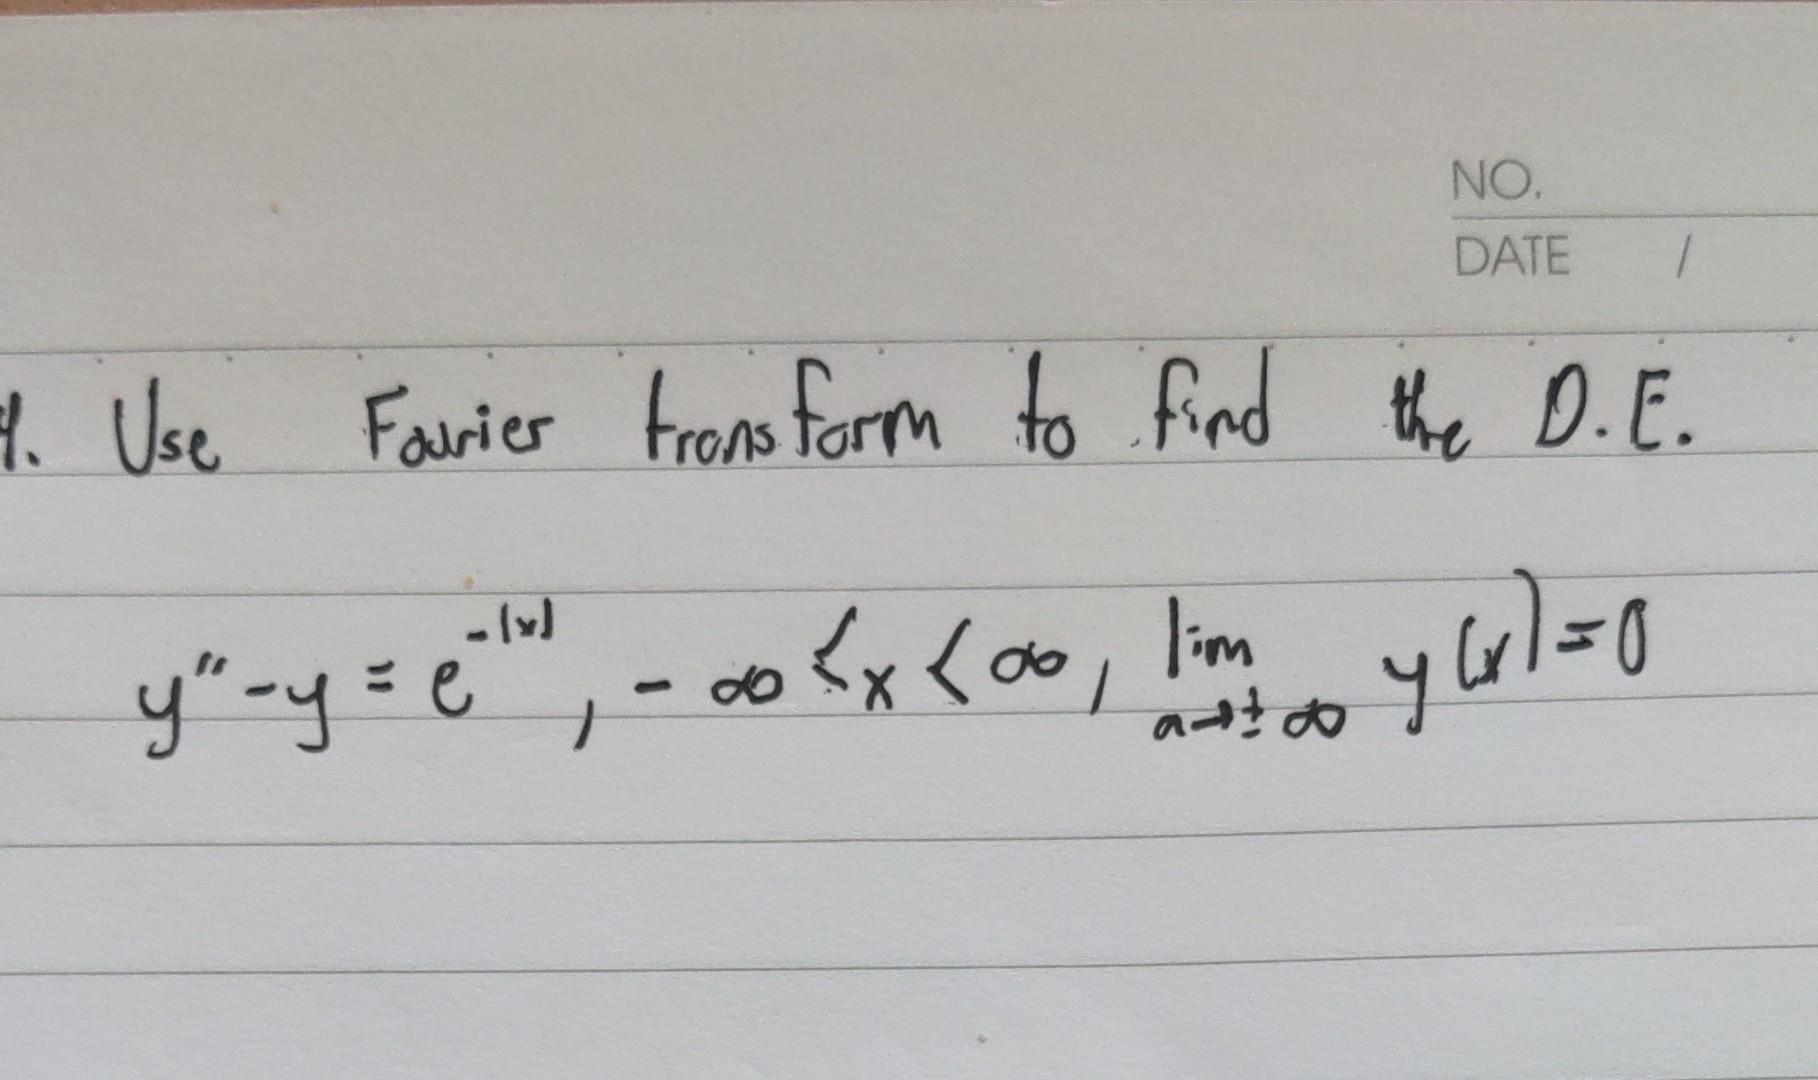 NO.
DATE /
4. Use Fourier transform to find the D.E.
y'' - y = e^{-|x|}, -∞ < x < ∞, lim_{a→±∞} y(x) = 0